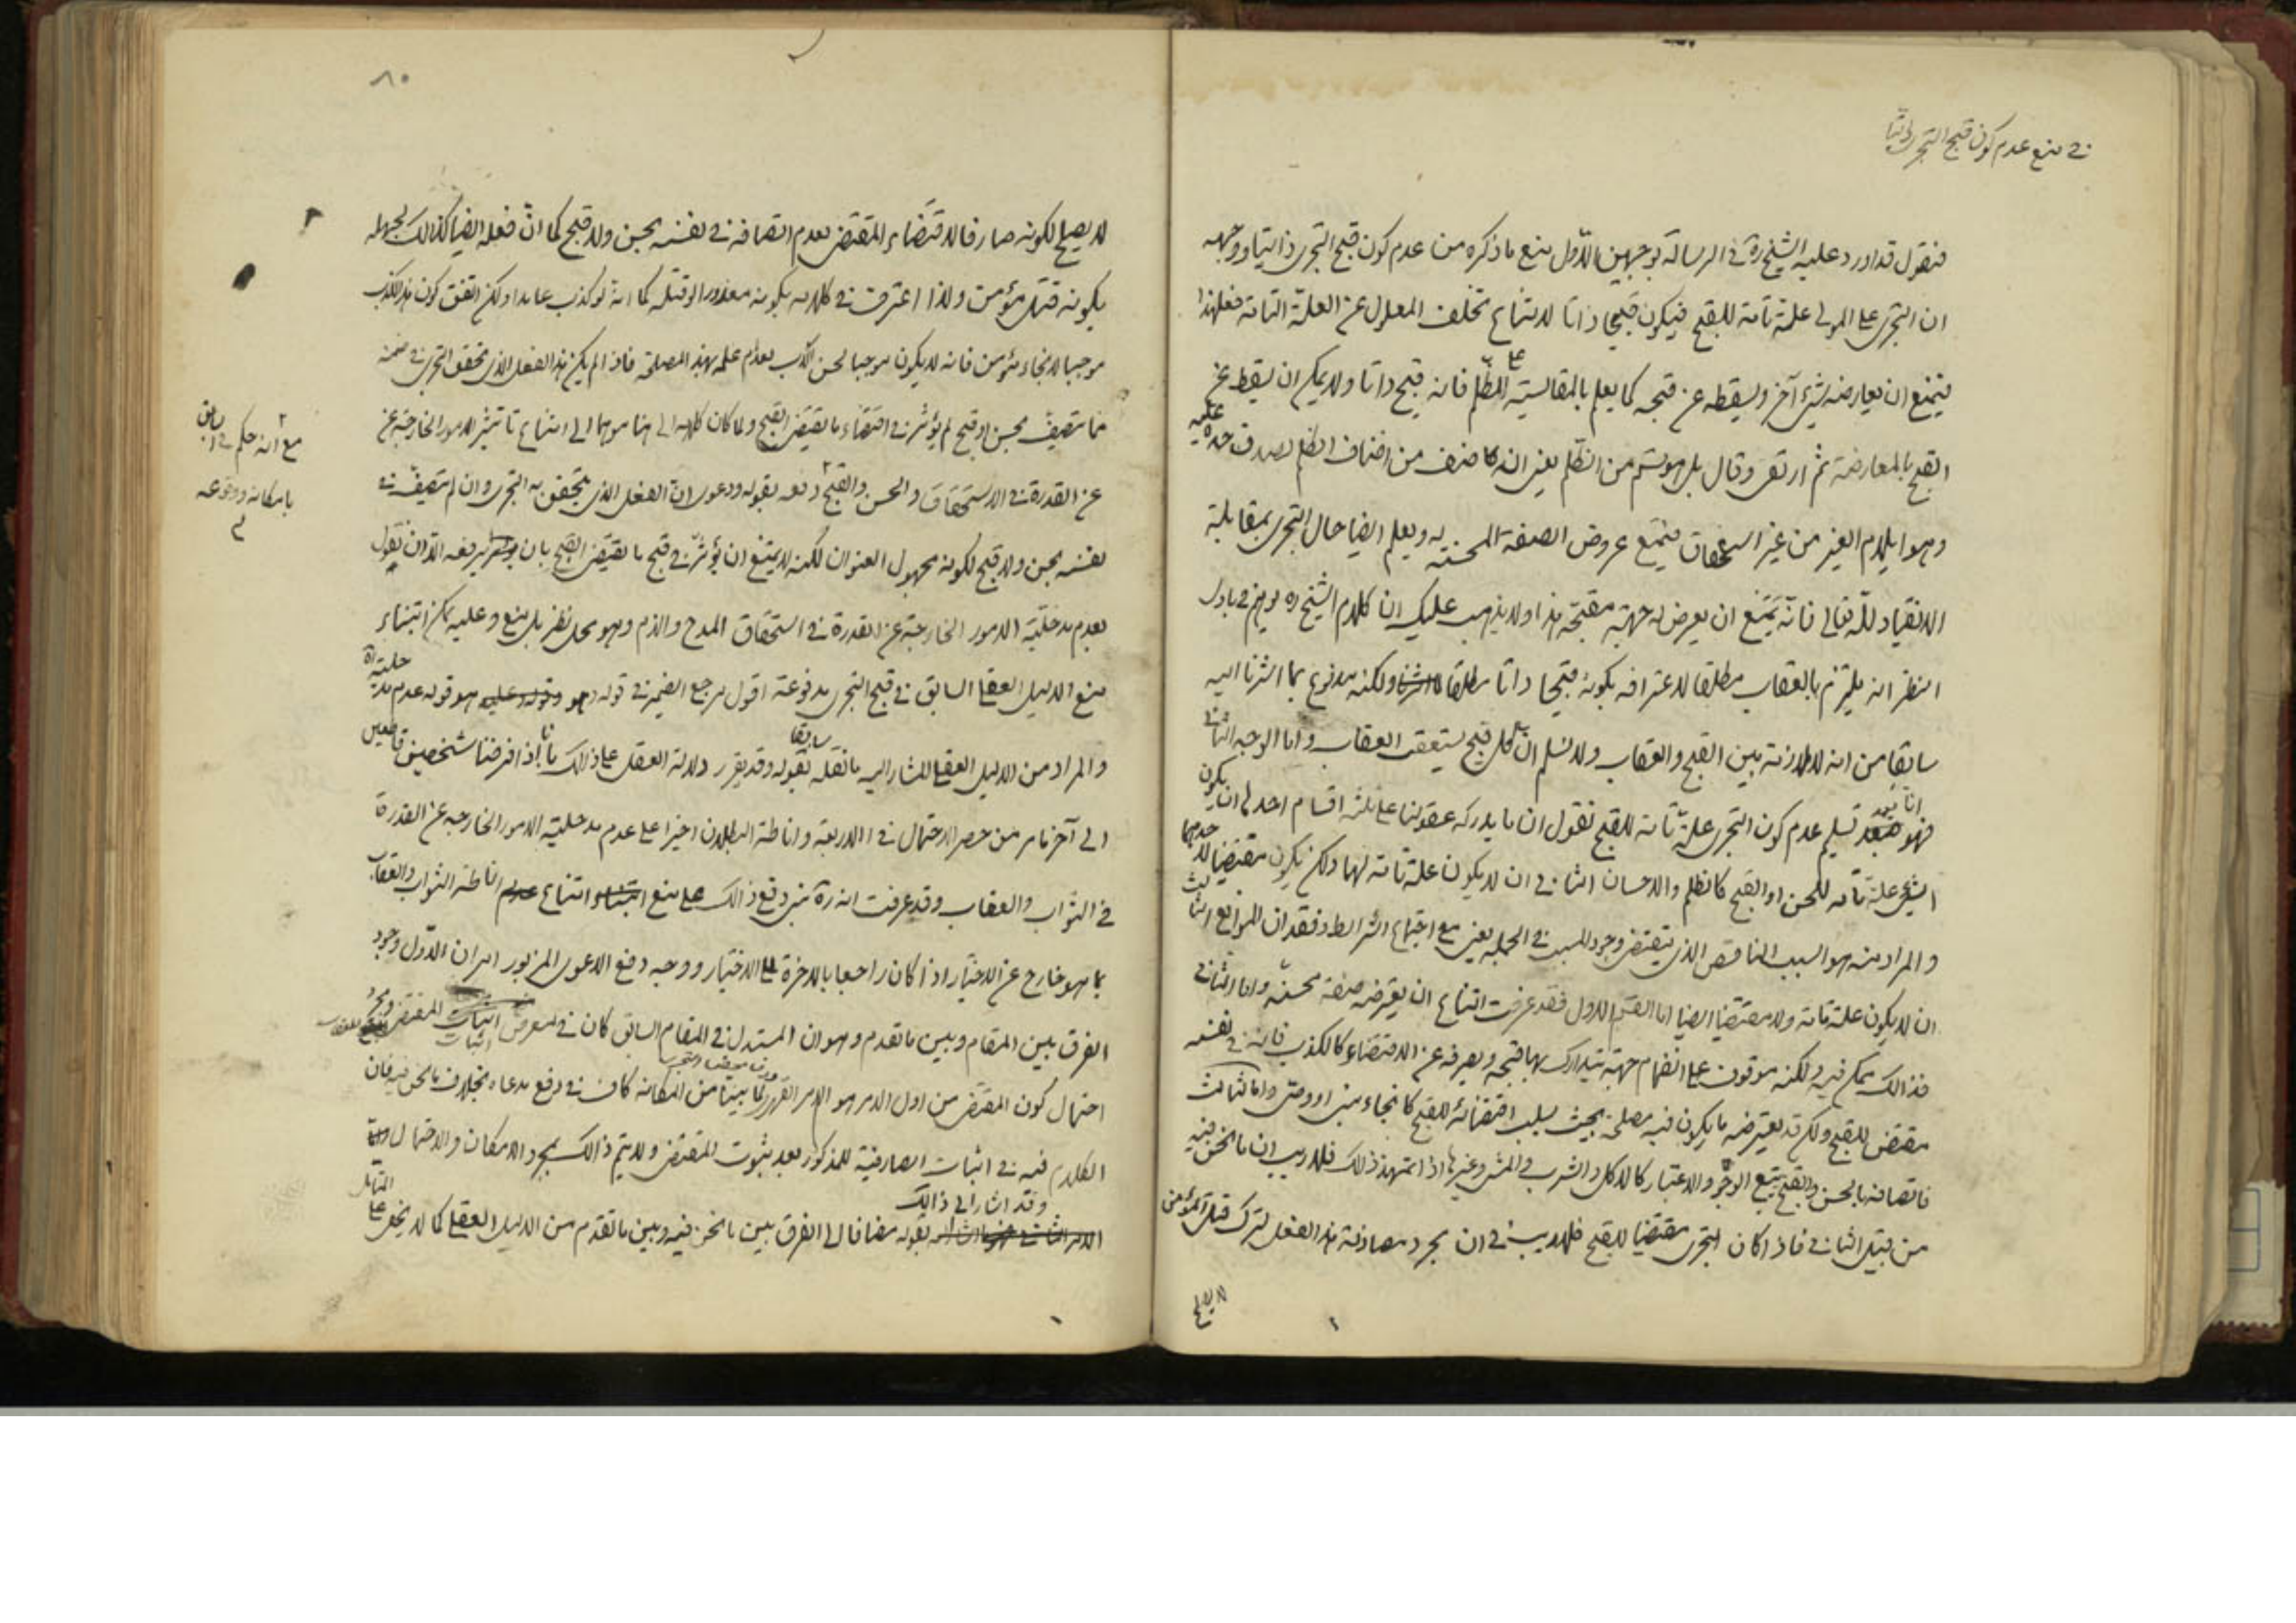 في منع عدم كون قبح التجري ذاتيا
فنقول قد اورد عليه الشيخ ره في الرسالة بوجهين الاول منع ما ذكره من عدم كون قبح التجري ذاتيا ووجهه
ان التجري على المولى علة تامة للقبح فيكون قبيحا ذاتا لامتناع تخلف المعلول عن العلة التامة فعلى هذا
يمتنع ان يعارضه شيء آخر ويسقطه عن قبحه كما يعلم بالمقايسة على الظلم فانه قبيح ذاتا ولا يمكن ان يسقط عن
القبح بالمعارضة ثم ارتقى وقال بل هو قسم من الظلم يعني انه صنف من اصناف الظلم لصدق حده عليه
وهو ايلام الغير من غير استحقاق فيمتنع عروض الصفة المحسنة به ويعلم ايضا حال التجري بمقابلة
الانقياد لله تعالى فانه يمتنع ان يعرض له جهة مقبحة هذا ولا يذهب عليك ان كلام الشيخ ره يوهم في بادي
النظر انه يلتزم بالعقاب مطلقا لاعترافه بكونه قبيحا ذاتا مطلقا ولكنه مدفوع بما اشرنا اليه
سابقا من انه لا ملازمة بين القبح والعقاب ولا نسلم ان كل قبيح يستعقب العقاب واما الوجه الثاني
فهو انا بعد تسليم عدم كون التجري علة تامة للقبح نقول ان ما يدركه عقولنا على ثلثة اقسام احدها ان يكون
الشيء علة تامة للحسن او القبح كالظلم والاحسان الثاني ان لا يكون علة تامة لهما ولكن يكون مقتضيا لاحدهما
والمراد منه هو السبب الناقص الذي يقتضي وجود المسبب في الجملة يعني مع اجتماع الشرائط وفقدان الموانع الثالث
ان لا يكون علة تامة ولا مقتضيا ايضا اما القسم الاول فقد عرفت امتناع ان يعرضه صفة محسنة واما الثاني
فذالك ممكن فيه ولكنه موقوف على انضمام جهة يتدارك بها قبحه ويصرفه عن الاقتضاء كالكذب فانه في نفسه
مقتض للقبح ولكن قد يعرضه ما يكون فيه مصلحة بحيث يسلب اقتضائه للقبح كانجاء نبي او وصي واما الثالث
فاتصافه بالحسن والقبح يتبع الوجوه والاعتبار كالاكل والشرب والمشي وغيرها اذا تمهد ذلك فلا ريب ان ما نحن فيه
من قبيل الثاني فاذا كان التجري مقتضيا للقبح فلا ريب في ان مجرد مصادفة هذا الفعل لترك قتل المؤمن
لا يصلح
٨٠
لا يصلح لكونه صارفا لاقتضاء المقتضي لعدم اتصافه في نفسه بحسن ولا قبح كما ان فعله ايضا كذالك لجهله
بكونه قتل مؤمن ولذا اعترف في كلامه بكونه معذورا لو قتله كما انه لو كذب عامدا ولكن اتفق كون هذا الكذب
موجبا لانجاء مؤمن فانه لا يكون موجبا لحسن الكذب لعدم علمه بهذه المصلحة فاذا لم يكن هذا الفعل الذي تحقق التجري في ضمنه
مما يتصف بحسن او قبح لم يؤثر في اقتضاء ما يقتضي القبح ولما كان كلامه الى هنا موهما الى امتناع تاثير الامور الخارجة عن
عن القدرة في الاستحقاق والحسن والقبح دفعه بقوله ودعوى ان الفعل الذي يتحقق به التجري وان لم يتصف في
مع انه حكم في السابق
بامكانه ووقوعه
نفسه بحسن ولا قبح لكونه مجهول العنوان لكنه لا يمتنع ان يؤثر في قبح ما يقتضي القبح بان يرفعه الا ان نقول
بعدم مدخلية الامور الخارجة عن القدرة في استحقاق المدح والذم وهو محل نظر بل منع وعليه يمكن ابتناء
منع الدليل العقلي السابق في قبح التجري مدفوعة اقول مرجع الضمير في قوله وهو هو قوله عدم مدخلية
والمراد من الدليل العقلي المشار اليه ما نقله سابقا بقوله وقد يقرر دلالة العقل على ذالك بانا اذا فرضنا شخصين قاطعين
الى آخر ما مر من حصر الاحتمال في الاربعة واناطة البطلان اخيرا على عدم مدخلية الامور الخارجة عن القدرة
في الثواب والعقاب وقد عرفت انه ره بنى دفع ذالك على منع امتناع اناطة الثواب والعقاب
بما هو خارج عن الاختيار اذا كان راجعا بالاخرة الى الاختيار ووجه دفع الدعوى المزبور امران الاول وجود
الفرق بين المقام وبين ما تقدم وهو ان المستدل في المقام السابق كان في معرض اثبات المقتضي ومجرد
احتمال كون المقتضي من اول الامر هو الامر القهري لما بينا من امكانه كاف في دفع مدعاه بخلاف ما نحن فيه فان
الكلام فيه في اثبات الصارفية للمذكور بعد ثبوت المقتضي ولا يتم ذالك بمجرد الامكان والاحتمال
وقد اشار الى ذالك بقوله مضافا الى الفرق بين ما نحن فيه وبين ما تقدم من الدليل العقلي كما لا يخفى على المتأمل